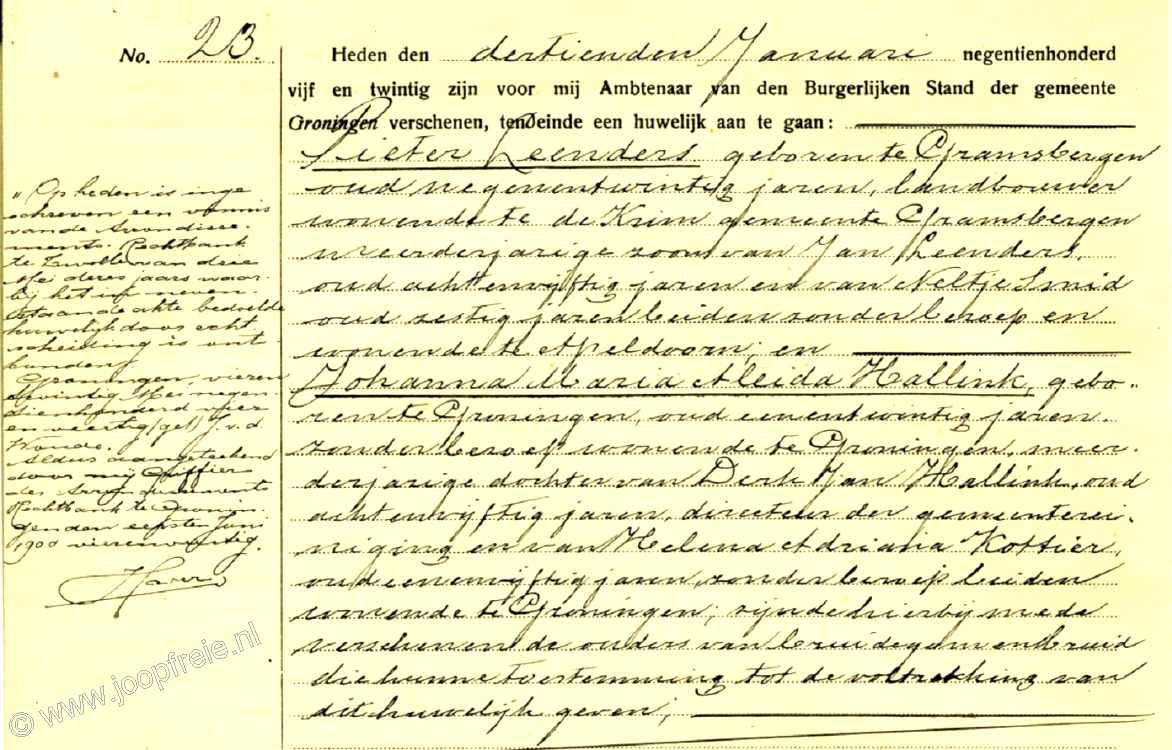 No. 23.
Heden den dertienden Januari negentienhonderd
vijf en twintig zijn voor mij Ambtenaar van den Burgerlijken Stand der gemeente
Groningen verschenen, teneinde een huwelijk aan te gaan:
Pieter Leenders geboren te Gramsbergen
oud negenentwintig jaren, landbouwer
wonende te de Krim gemeente Gramsbergen
meerderjarige zoon van Jan Leenders,
oud achtenvijftig jaren en van Neltje Smid
oud zestig jaren beiden zonder beroep en
wonende te Apeldoorn; en
Johanna Maria Aleida Hallink, gebo-
ren te Groningen, oud eenentwintig jaren,
zonder beroep wonende te Groningen, meer-
derjarige dochter van Derk Jan Hallink, oud
achtenvijftig jaren, directeur der gemeenterei-
niging en van Helena Adriana Kottier,
oud eenenvijftig jaren, zonder beroep beiden
wonende te Groningen; zijnde hierbij mede
verschenen de ouders van bruidegom en bruid
die hunne toestemming tot de voltrekking van
dit huwelijk geven;
„Op heden is inge
schreven een vonnis
van de Arrondisse-
ments-Rechtbank
te Zwolle van drie
Mei dezes jaars waar-
bij het in neven-
staande akte bedoelde
huwelijk door echt
scheiding is ont-
bonden.
Groningen, vieren
twintig Mei negen-
tienhonderd vier
en veertig (get) J. v. d.
Woude.
Aldus aangeteekend
door mij Griffier
der Arrondissements
Rechtbank te Gronin-
gen den eersten Juni
1900 vierenveertig.
© www.joopfreie.nl